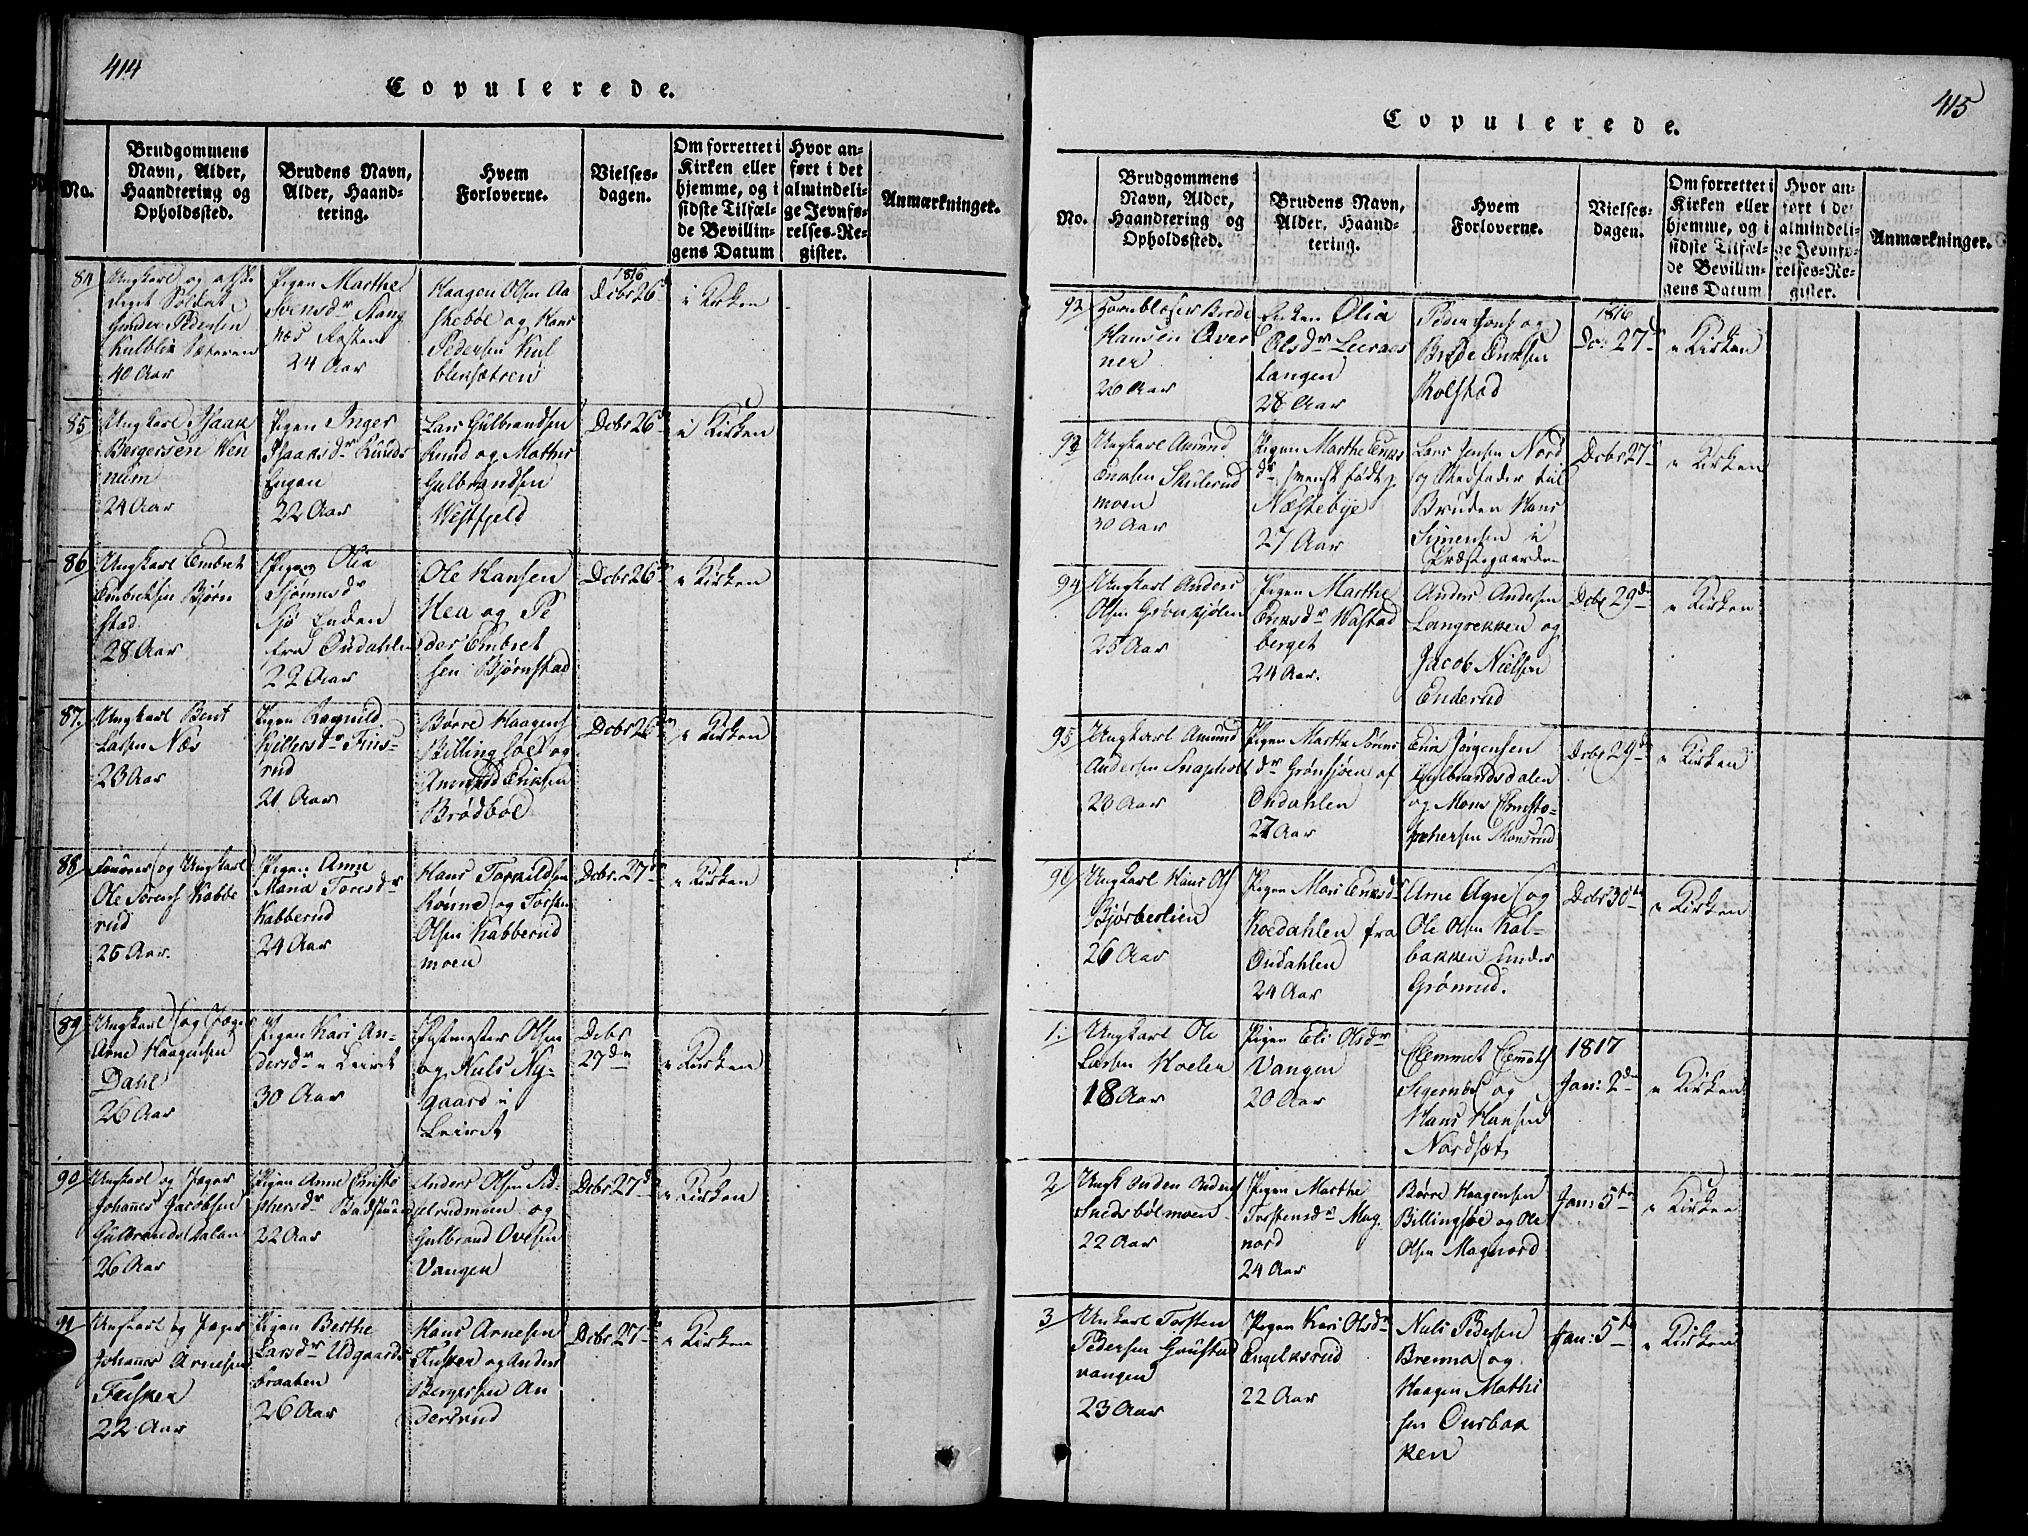 414
Copulerede.
No.
Brudgommens
Navn, Alder,
Haandtering og
Opholdssted.
Brudens Navn,
Alder, Haand-
tering.
Hvem
Forloverne.
Vielses-
dagen.
Om forrettet i
Kirken eller
hjemme, og i
sidste Tilfæl-
de Bevillin-
gens Datum
Hvor an-
ført i det
almindeli-
ge Jevnfø-
relses-Re-
gister.
Anmærkninger.
84
Ungkarl og
Soldat
Gunder Pedersen
40 Aar
Pigen Marthe
Svensdr Mang
næs
24 Aar
Haagen Olsen Aa
skebøe og Hans
Pedersen Kul
blensætren
1816
Dcbr 26
i Kirken
85
Ungkarl Isaak
Bergersen Hen
num
24 Aar
Pigen Inger
Isaaksdr Runds
Engen
22 Aar
Lars Gulbrandsen
Rund og Mathis
Gulbrandsen
Westfjeld
Dcbr 26
i Kirken
86
Ungkarl Embret
Embretsen Bjørn
stad
28 Aar
Pigen Olia
Sjønnesdr
Sjø Enden
fra Oudahlen
22 Aar
Ole Hansen
Hea og Pe
der Embret
sen Bjørnstad
Dcbr 26
i Kirken
87.
Ungkarl Bent
Larsen Næs
23 Aar
Pigen Ragnild
rud
21 Aar
Børre Haagens
Billingsøe og
Amund Eriksen
Brødbøl
Dcbr 26
i Kirken
88
og Ungkarl
Ole Torens Kabbe
rud
25 Aar.
Pigen Anne
Maria Toresdr
Kabberud
24 Aar
Hans Torkildsen
Rønne og Torsten
Olsen Kabberud
moen
Dcbr. 27
i Kirken
89
Ungkarl og Jæger
Arne Haagensen
Dahl
26 Aar
Pigen Kari An-
dersdr i Leiret
30 Aar
Postmester Olsen
og Niels Ny-
gaard i
Leiret
Dcbr
27de
i Kirken
90
Ungkarl og Jæger
Johannes Jacobsen
Gulbrandsdalen
26 Aar
Pigen Anne Christo
phersdr Badstuen
22 Aar
Anders Olsen
og
Gulbrand Ovesen
Vangen
Dcbr 27d
i Kirken
91
Ungkarl og Jæger
Johannes Arnesen
Fusker
22 Aar
Pigen Berthe
Larsdr Udgaards
braaten
26 Aar
Hans Arnesen
Fusker og Anders
Bergersen An
dersrud
Dcbr 27
i Kirken
415
Copulerede.
No.
Brudgommens
Navn, Alder,
Haandtering og
Opholdssted.
Brudens Navn,
Alder, Haand-
tering.
Hvem
Forloverne.
Vielses-
dagen.
Om forrettet i
Kirken eller
hjemme, og i
sidste Tilfæl-
de Bevillin-
gens Datum
Hvor an-
ført i det
almindeli-
ge Jevnfø-
relses-Re-
gister.
Anmærkninger.
92
Hornblæser Brede
Hansen Over
nee
26 Aar
Enken Olia
Olsdr Leernes
Langen
28 Aar
Peder Jons og
Brede Eriksen
Rolstad
1816
Do: 27
i Kirken
93
Ungkarl Amund
Eriksen Skulerud
moen
30 Aar
Pigen Marthe Eriks
dr svensk født p.
Næstebye
27 Aar
Lars Jensen Nord
og Stedfader til
Bruden Hans
Simensen i
Præstegaarden
Dcbr 27
i Kirken
94
Ungkarl Anders
Olsen Grøberkjølen
25 Aar
Pigen Marthe
Eriksdr Wastad
berget
24 Aar.
Anders Andersen
Langrekken og
Jacob Nielsen
Enderud
Dcbr 29d
i Kirken
95
Ungkarl Amund
Andersen Snapholt
23 Aar
Pigen Marthe Sørens
dr Grønsjøen af
Oudahlen
27 Aar
Erik Jørgensen
Gulbrandsdalen
og Mons Christo-
phersen Monsrud
Dcbr 29d
i Kirken
96
Ungkarl Hans Ols
Bjørberlien
26 Aar
Pigen Mari Eriksdr
Koedahlen fra
Oudahlen
24 Aar
Arne og
Ole Olsen Kol-
bakken under
Grønrud.
Dcbr 30te
i Kirken
1.
Ungkarl Ole
Larsen Moelen
18 Aar
Pigen Eli Olsdr
Vangen
20 Aar
Clemmet Clemets
Sigernes og
Hans Hansen
Nordsæt
1817
Jan: 2d
i Kirken
2
Ungk
Snedsbølmoen
22 Aar
Pigen Marthe
Torstensdr Mag
nord
24 Aar
Børre Haagensen
Billingsøe og Ole
Olsen Magnord
Jan: 5te
i Kirken
3
Unkarl Torsten
Pedersen Gaustad
vangen
23 Aar
Pigen Kari Olsdr
Engelksrud
22 Aar
Niels Pedersen
Brenna og
Haagen Mathi
sen Ousbak
ken
Jan: 5te
i Kirken